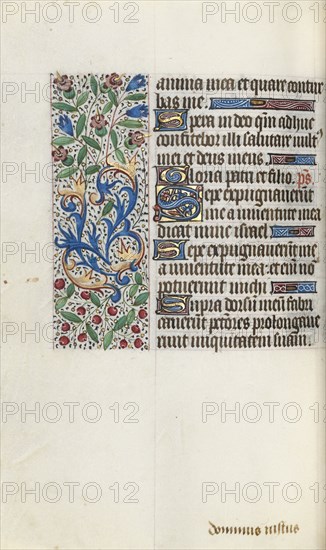 anima mea et quare contur
bas me.
Spera in deo qm adhuc
confitebor illi salutare vult
mei et deus meus.
Gloria patri et filio. ps
Sepe expugnaverunt
me a iuventute mea
dicat nunc israel
Sepe expugnaverunt me
a iuventute mea: et eni non
potuerunt michi
Supra dorsu meu fabri
caverunt peccatores prolongave
runt iniquitatem suam.
dominus iustus
PHOTO 12